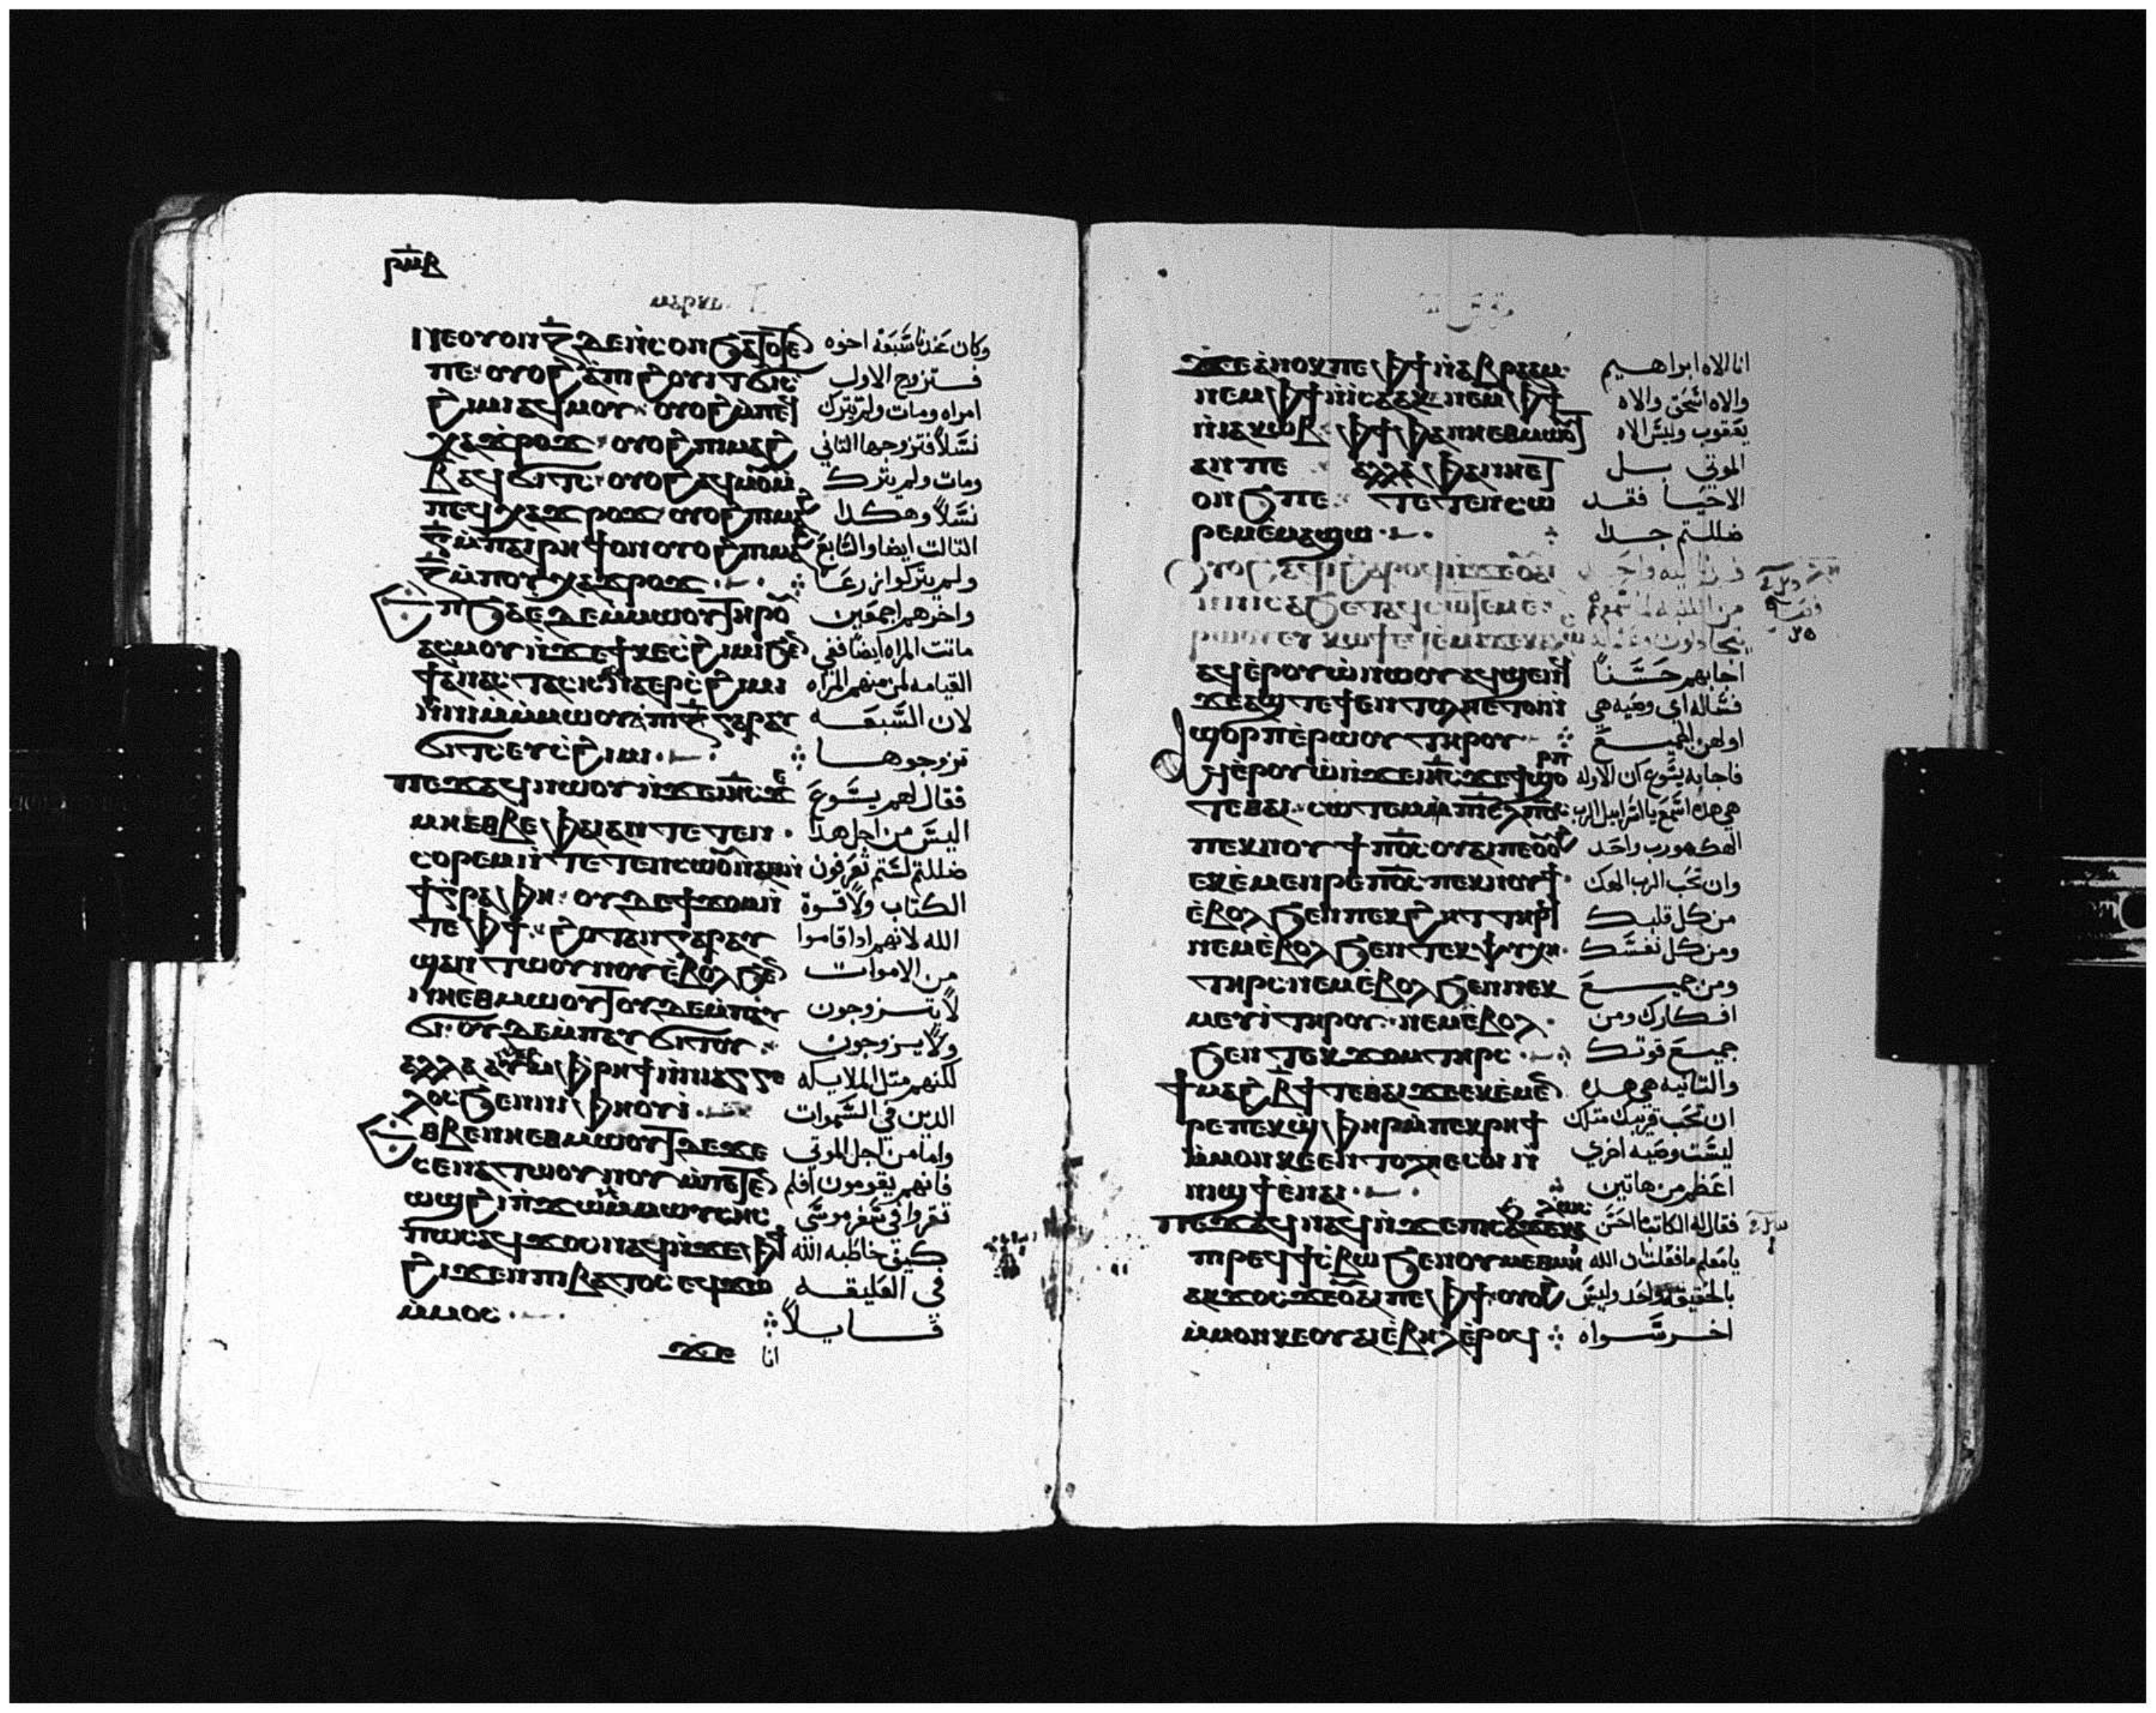 ⲣⲙⲃ
ⲛⲉⲟⲩⲟⲛ ⲍ̅ ⲇⲉ ⲛ̀ⲥⲟⲛ
وكان عندنا سبعه اخوه
ⲡⲉ ⲟⲩⲟϩ
فتزوج الاول
ϩⲓⲙⲓ ⲁϥⲙⲟⲩ ⲟⲩⲟϩ ⲙ̀ⲡⲉϥ
امراه ومات ولم يترك
ⲭⲁϫⲣⲟϫ ⲟⲩⲟϩ ⲡⲓⲙⲁϩ
نسلاً فتزوجها التاني
ⲃ̅ ⲁϥϭⲓⲧⲥ ⲟⲩⲟϩ ⲁϥⲙⲟⲩ ⲙ̀
ومات ولم يترك
ⲡⲉϥⲭⲁϫⲣⲟϫ ⲟⲩⲟϩ ⲡⲓⲙⲁϩ
نسلاً وهكدا
ⲅ̅ ⲙ̀ⲡⲁⲓⲣⲏϯ ⲟⲛ ⲟⲩⲟϩ ⲡⲓⲙⲁϩ
التالت ايضا والسابع
ⲍ̅ ⲙ̀ⲡⲟⲩⲭⲁϫⲣⲟϫ
ولم يتركوا زرعا
ⲇⲉ ⲇⲉ ⲙ̀ⲙⲱⲟⲩ ⲧⲏⲣⲟⲩ
واخرهم اجمعين
ⲁⲥⲙⲟⲩ ⲛ̀ϫⲉ ϯⲕⲉⲥϩⲓⲙⲓ ϧⲉⲛ
ماتت المراه ايضا ففي
ϯⲁⲛⲁⲥⲧⲁⲥⲓⲥ ⲁⲥⲛⲁⲉⲣⲥϩⲓⲙⲓ
القيامه لمن منهم المراه
ⲛ̀ⲛⲓⲙ ⲙ̀ⲙⲱⲟⲩ ⲡⲓⲍ̅ ⲅⲁⲣ ⲁⲩ
لان السبعه
ϭⲓⲧⲥ ⲉⲩⲥϩⲓⲙⲓ
تزوجوها
ⲡⲉϫⲁϥ ⲛⲱⲟⲩ ⲛ̀ϫⲉ ⲓⲏⲥ ϫⲉ
فقال لهم يسوع
ⲙⲏ ⲉⲑⲃⲉ ⲫⲁⲓ ⲁⲛ ⲧⲉⲧⲉⲛ
اليس من اجل هدا
ⲥⲟⲣⲉⲙ ⲛ̀ⲧⲉⲧⲉⲛⲥⲱⲟⲩⲛ ⲁⲛ ⲛ̀
ضللتم لستم تعرفون
ϯⲅⲣⲁⲫⲏ ⲟⲩⲇⲉ ϯϫⲟⲙ ⲛ̀
الكتاب ولا قوة
ⲧⲉ ⲫϯ ϩⲟⲧⲁⲛ ⲅⲁⲣ ⲁⲩ
الله لانهم ادا قاموا
ϣⲁⲛⲧⲱⲟⲩⲛⲟⲩ ⲉ̀ⲃⲟⲗ ϧⲉⲛ
من الاموات
ⲛⲏⲉⲑⲙⲱⲟⲩⲧ ⲟⲩⲇⲉ ⲙ̀ⲡⲁⲩ
لا يتزوجون
ϭⲓ ⲟⲩⲇⲉ ⲙ̀ⲡⲁⲩϭⲓⲧⲟⲩ
ولا يزوجون
ⲁⲗⲗⲁ ⲁⲩ ⲙ̀ⲫⲣⲏϯ ⲛ̀ⲛⲓⲁⲅⲅⲉ
لكنهم مثل الملايكه
ⲗⲟⲥ ϧⲉⲛ ⲛⲓⲫⲏⲟⲩⲓ̀
الدين في السموات
ⲉⲑⲃⲉ ⲛⲏⲉⲑⲙⲱⲟⲩⲧ ⲇⲉ ϫⲉ
واما من اجل الموتي
ⲥⲉⲛⲁⲧⲱⲟⲩⲛⲟⲩ ⲙ̀ⲡⲉⲧⲉⲛ
فانهم يقومون افلم
ⲱϣ ϩⲓ ⲡ̀ϫⲱⲙ ⲙ̀ⲙⲱⲩⲥⲏⲥ
تقروا في سفر موسي
ⲡⲱⲥ ⲁϥϫⲟⲥ ⲛⲁϥ ⲛ̀ϫⲉ ⲫϯ
كيف خاطبه الله
ϩⲓϫⲉⲛ ⲡⲓⲃⲁⲧⲟⲥ ⲉϥϫⲱ
في العليقه
ⲙ̀ⲙⲟⲥ
قايلاً
ϫⲉ انا
ϫⲉ ⲁⲛⲟⲕ ⲡⲉ ⲫϯ ⲛ̀ⲁⲃⲣⲁⲁⲙ
انا الاه ابراهيم
ⲛⲉⲙ ⲫϯ ⲛ̀ⲓⲥⲁⲁⲕ ⲛⲉⲙ ⲫϯ
والاه اسحق والاه
ⲛ̀ⲓⲁⲕⲱⲃ ⲫϯ ⲫⲁ ⲛⲏⲉⲑⲙⲱⲟⲩⲧ
يعقوب وليس الاه
ⲁⲛ ⲡⲉ ⲁⲗⲗⲁ ⲫⲁ ⲛⲏⲉⲧ
الموتي بل
ⲟⲛϧ ⲡⲉ ⲧⲉⲧⲉⲛⲥⲱ
الاحيا فقد
ⲣⲉⲙ ⲉ̀ⲙⲁϣⲱ
ضللتم جدا
ⲟⲩⲟϩ ⲁϥⲓ̀ ϩⲁⲣⲟϥ ⲛ̀ϫⲉ ⲟⲩⲁⲓ
ⲛ̀ⲛⲓⲥⲁϧ ⲉⲧⲁϥⲥⲱⲧⲉⲙ ⲉ̀
ⲁϥⲉ̀ⲣⲟⲩⲱ̀ ⲛⲱⲟⲩ ⲁϥϣⲉⲛϥ
اجابهم حسناً
ϫⲉ ⲁϣ ⲧⲉ ϯⲉⲛⲧⲟⲗⲏ ⲉⲧⲟⲓ ⲛ̀
فساله اي وصيه هي
ϣⲟⲣⲡ ⲉ̀ⲣⲱⲟⲩ ⲧⲏⲣⲟⲩ
اولهن الجميع
ⲁϥⲉ̀ⲣⲟⲩⲱ̀ ⲛ̀ϫⲉ ⲓⲏⲥ ϫⲉ ϯϣⲟ
فاجابه يسوع ان الاوله
ⲧⲉ ⲑⲁⲓ ⲥⲱⲧⲉⲙ ⲡⲓⲥⲗ ⲡ⳪
هي هده اسمع يا اسراييل الرب
ⲡⲉⲕⲛⲟⲩϯ ⲡ⳪ ⲟⲩⲁⲓ ⲡⲉ ⲟⲩⲟϩ
الهك هو رب واحد
ⲉⲕⲉ̀ⲙⲉⲛⲣⲉ ⲡ⳪ ⲡⲉⲕⲛⲟⲩϯ
وان تحب الرب الهك
ⲉ̀ⲃⲟⲗ ϧⲉⲛ ⲡⲉⲕϩⲏⲧ ⲧⲏⲣϥ
من كل قلبك
ⲛⲉⲙ ⲉ̀ⲃⲟⲗ ϧⲉⲛ ⲧⲉⲕⲯⲩⲭⲏ
ومن كل نفسك
ⲧⲏⲣⲥ ⲛⲉⲙ ⲉ̀ⲃⲟⲗ ϧⲉⲛ ⲛⲉⲕ
ومن جميع
ⲙⲉⲩⲓ̀ ⲧⲏⲣⲟⲩ ⲛⲉⲙ ⲉ̀ⲃⲟⲗ
افكارك ومن
ϧⲉⲛ ⲧⲉⲕϫⲟⲙ ⲧⲏⲣⲥ
جميع قوتك
ϯⲙⲁϩ ⲃ̅ϯ ⲧⲉ ⲑⲁⲓ ϫⲉ ⲉⲕⲉ̀ⲙⲉⲛ
والتانيه هي هده
ⲣⲉ ⲡⲉⲕϣⲫⲏⲣ ⲙ̀ⲡⲉⲕⲣⲏϯ
ان تحب قريبك مثلك
ⲙ̀ⲙⲟⲛ ⲕⲉⲉⲛⲧⲟⲗⲏ ⲉⲥⲟⲓ ⲛ̀
ليست وصيه اخري
ⲛⲓϣϯ ⲉ̀ⲛⲁⲓ
اعظم من هاتين
ⲡⲉϫⲁϥ ⲛⲁϥ ⲛ̀ϫⲉ ⲡⲓⲥⲁϧ
فقال له الكاتب احسن
ⲡⲓⲣⲉϥϯⲥⲃⲱ ϧⲉⲛ ⲟⲩⲙⲉⲑⲙⲏⲓ
يا معلم الله
ⲁⲕϫⲟⲥ ϫⲉ ⲟⲩⲁⲓ ⲡⲉ ⲫϯ ⲟⲩⲟϩ
بالحقيقه واحد وليس
ⲙ̀ⲙⲟⲛ ⲕⲉⲟⲩⲁⲓ ⲉ̀ⲃⲏⲗ ⲉ̀ⲣⲟϥ
اخر سواه